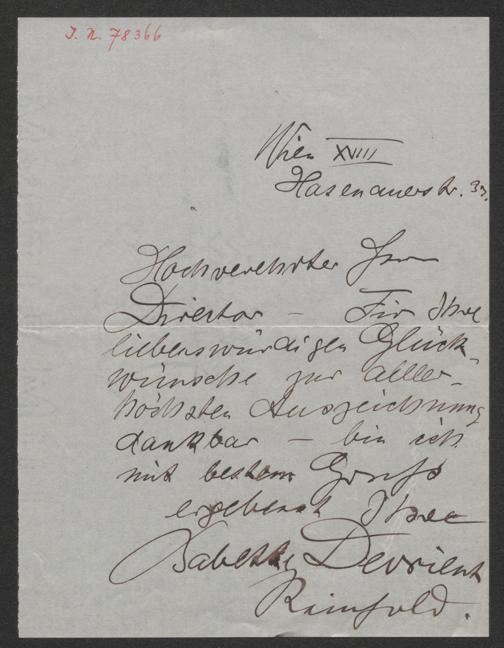 J. N. 78366
Wien XVIII
Hasenauerstr. 37.
Hochverehrter Herr
Director – Für Ihre
liebenswürdigen Glück-
wünsche zur aller-
höchsten Auszeichnung
dankbar – bin ich
mit bestem Gruß
ergebenst Ihre
Babette Devrient
Reinhold.